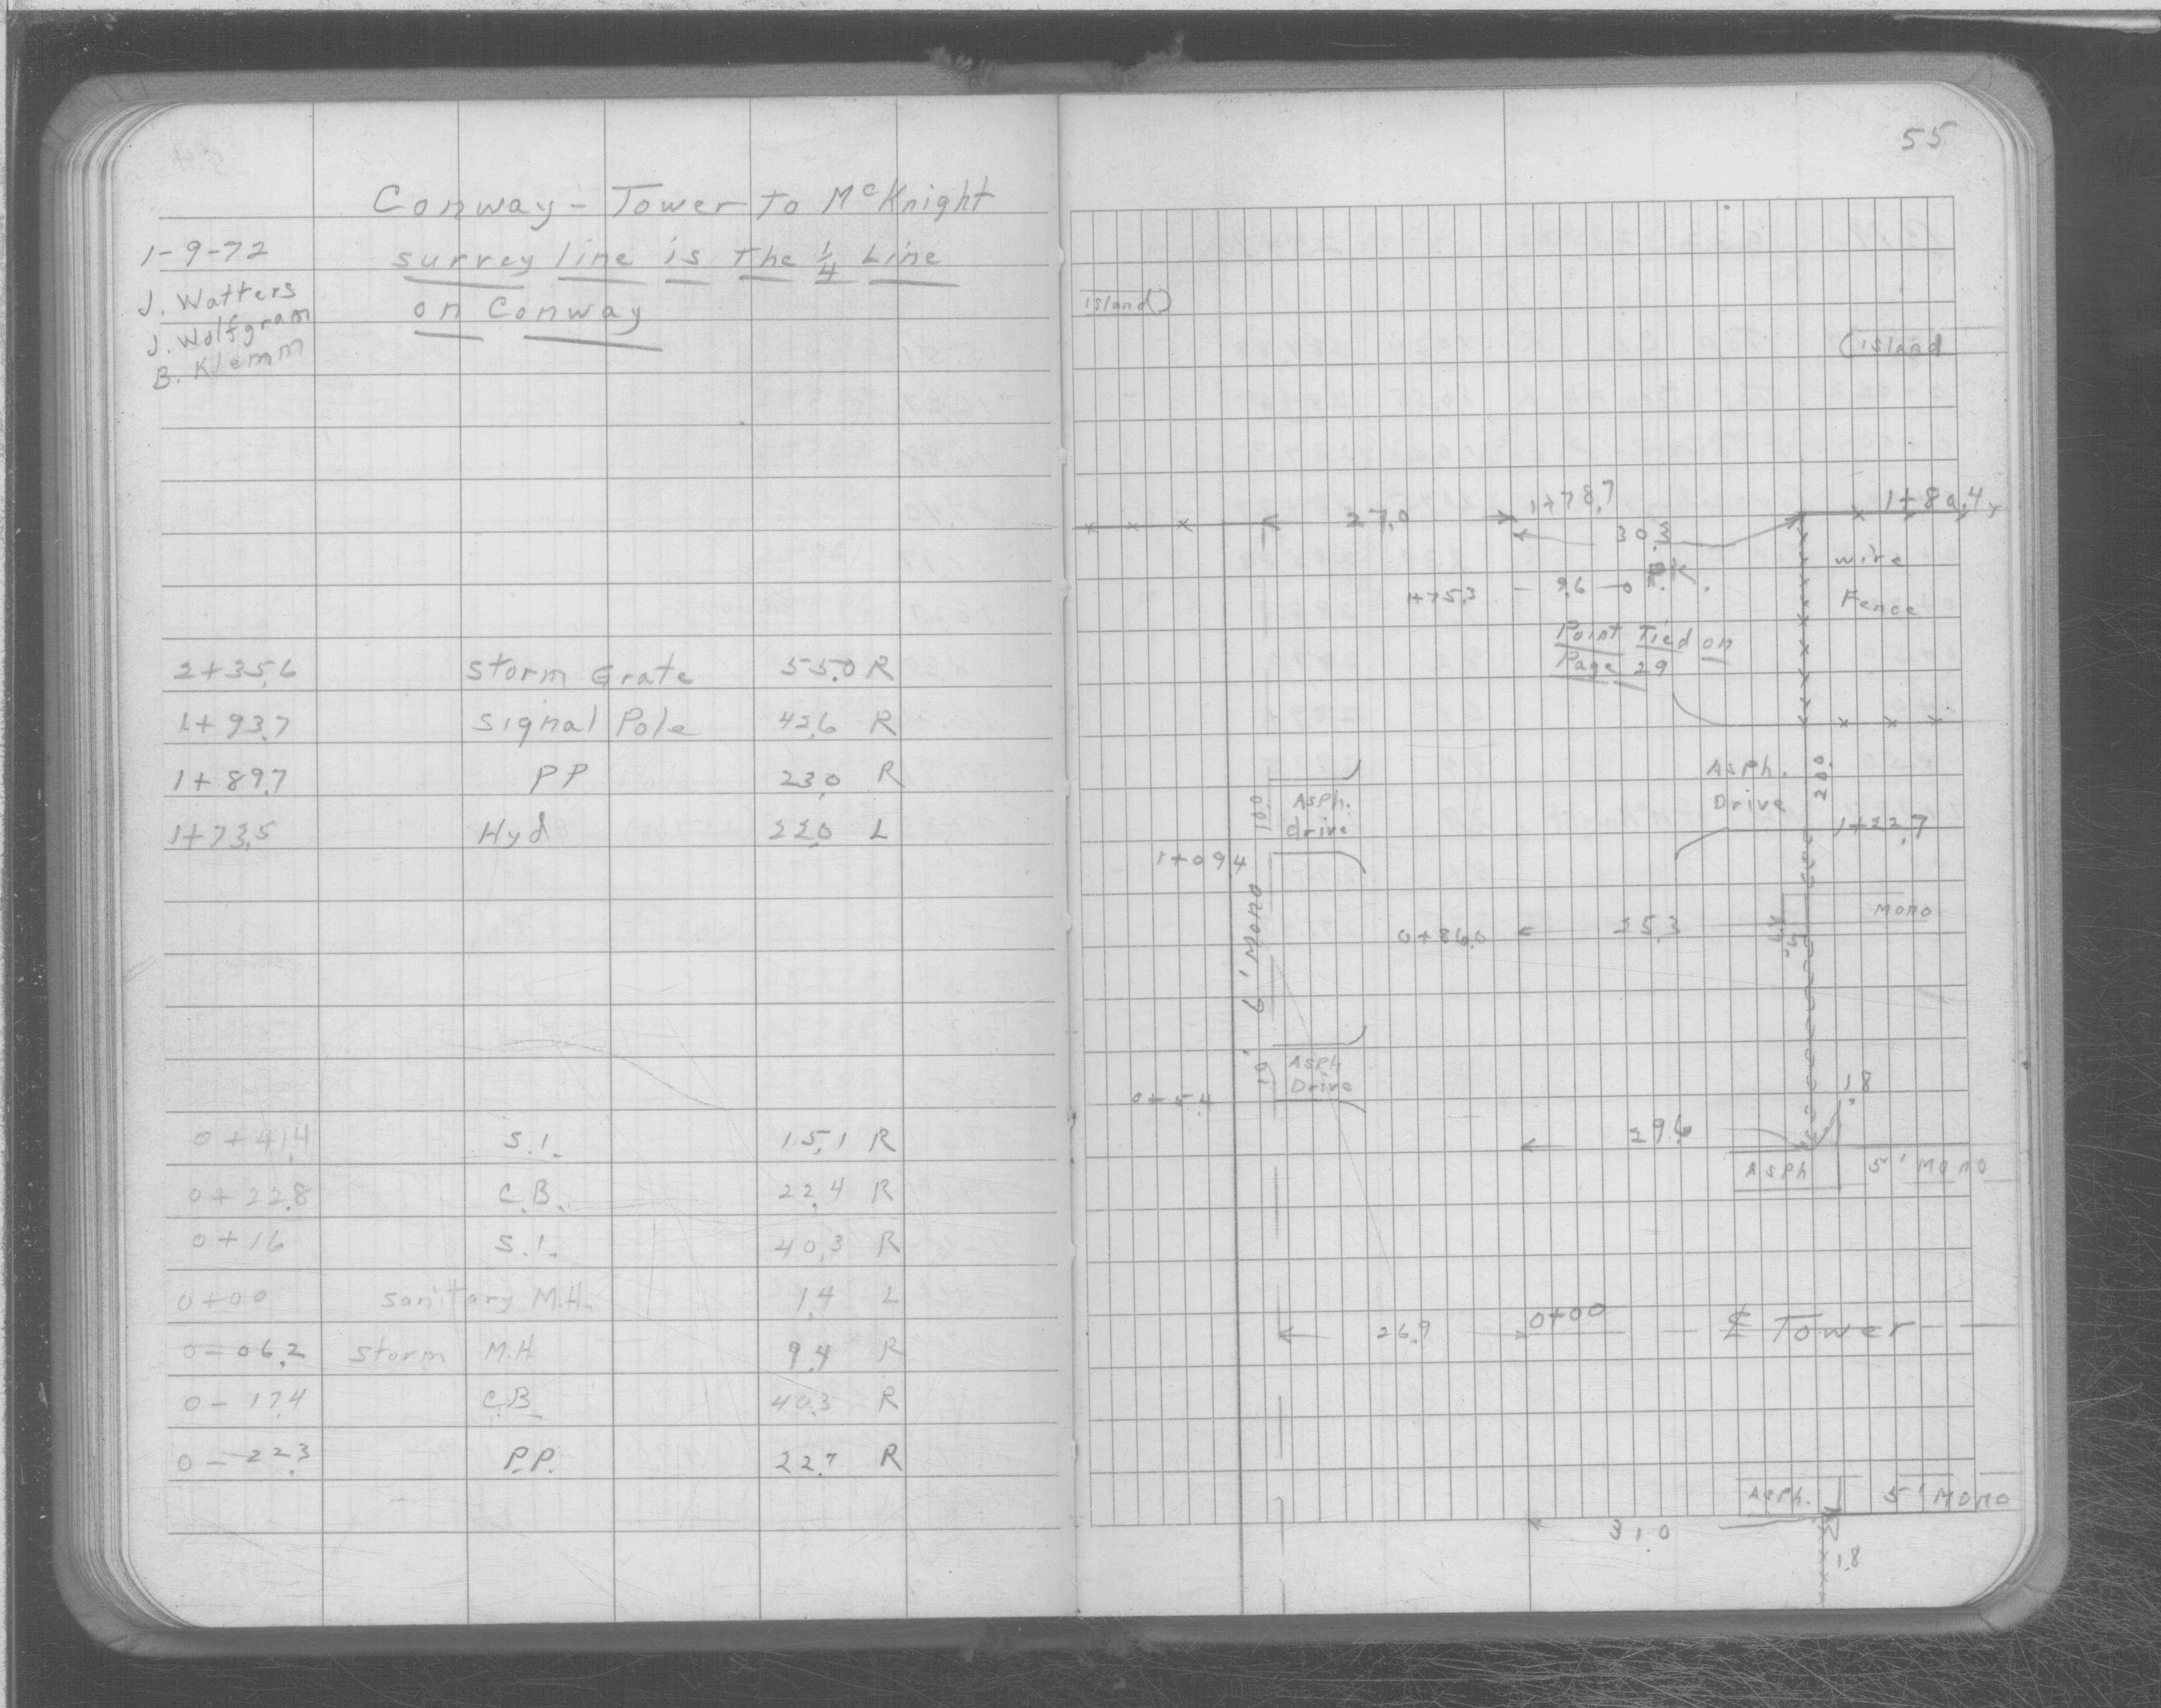 Conway - Tower to McKnight
1-9-72
survey line is the 1/4 Line
on Conway
J. Watters
J. Wolfgram
B. Klemm
2+35.6 Storm Grate 55.0 R
1+93.7 Signal Pole 42.6 R
1+89.7 PP 23.0 R
1+73.5 Hyd 22.0 L
0+41.4 S.I. 15.1 R
0+22.8 C.B. 22.4 R
0+16 S.I. 40.3 R
0+00 sanitary M.H. 1.4 L
0-06.2 Storm M.H 9.4 R
0-17.4 C.B. 40.3 R
0-22.3 P.P. 22.7 R
55
island)
(island
27.0 1+78.7
30.3
wire
1+75.3 - 9.6 - o P.K.
Fence
Point Tied on
Page 29
Asph.
Drive
20.0
10.0
Asph.
drive
1+22.7
1+09.4
6' Mono
Mono
0+86.0 25.3
10'
Asph
Drive
0+54
1.8
29.6
Asph 5' Mono
26.9 0+00 ℄ Tower
Asph. 5' Mono
31.0
1.8